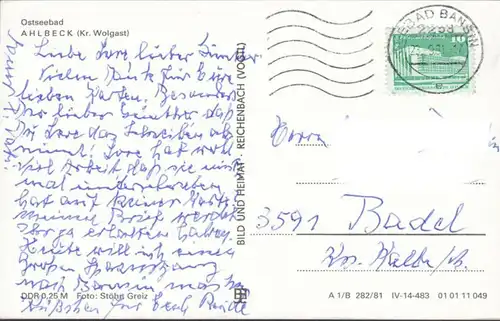 Ostseebad
AHLBECK (Kr. Wolgast)
Liebe Lore lieber Günter
Vielen Dank für Eure
lieben Karten, Besonders
Der lieber Günther daß
Du Lore das Schreiben ab
nimmt! Lore hat wohl
viel Arbeit daß sie nicht
mal unterschreiben
hat auf keiner Karte
meinen Brief werdet
Ihr ja erhalten haben.
Heute will ich einen
Großen Spaziergang
nach Bansin machen
Küßchen für Euch Beide
DDR 0,25 M Foto: Stöhn Greiz
BILD UND HEIMAT · REICHENBACH (VOGTL)
SEEBAD BANSIN
10
Herrn
3591 Badel
Krs. Kalbe/M.
A 1/B 282/81 IV-14-483 01 01 11 049